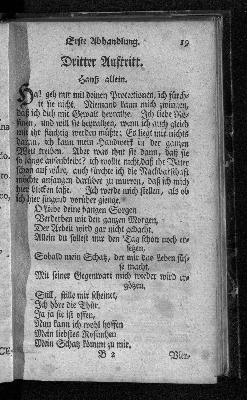 Erste Abhandlung. 19
Dritter Auftritt.
Hanß allein.
Ha! geh nur mit deinen Protectionen, ich fürch-
te sie nicht. Niemand kann mich zwingen,
daß ich dich mit Gewalt heyrathe. Ich liebe Ro-
sinen, und will sie heyrathen, wenn ich auch gleich
mit ihr flüchtig werden müßte: Es liegt mir nichts
daran, ich kann mein Handwerk in der ganzen
Welt treiben. Aber was thut sie dann, daß sie
so lange ausbleibet? ich wollte nicht, daß ihr Vater
schon auf wäre, auch fürchte ich die Nachbarschaft
möchte anfangen darüber zu murren, daß ich mich
hier blicken lasse. Ich werde mich stellen, als ob
ich hier singend vorüber gienge.
O liebe deine bangen Sorgen
Verderben mir den ganzen Morgen,
Der Arbeit wird gar nicht gedacht,
Allein du sollest mir den Tag schon noch er-
setzen,
Sobald mein Schatz, der mir das Leben süs-
se macht,
Mit seiner Gegenwart mich wieder wird er-
götzen,
Still, stille mir scheinet,
Ich höre die Thür.
Ja ja sie ist offen,
Nun kann ich wohl hoffen
Mein liebstes Rosinchen
Mein Schatz kömmt zu mir.
B 2 Vier-